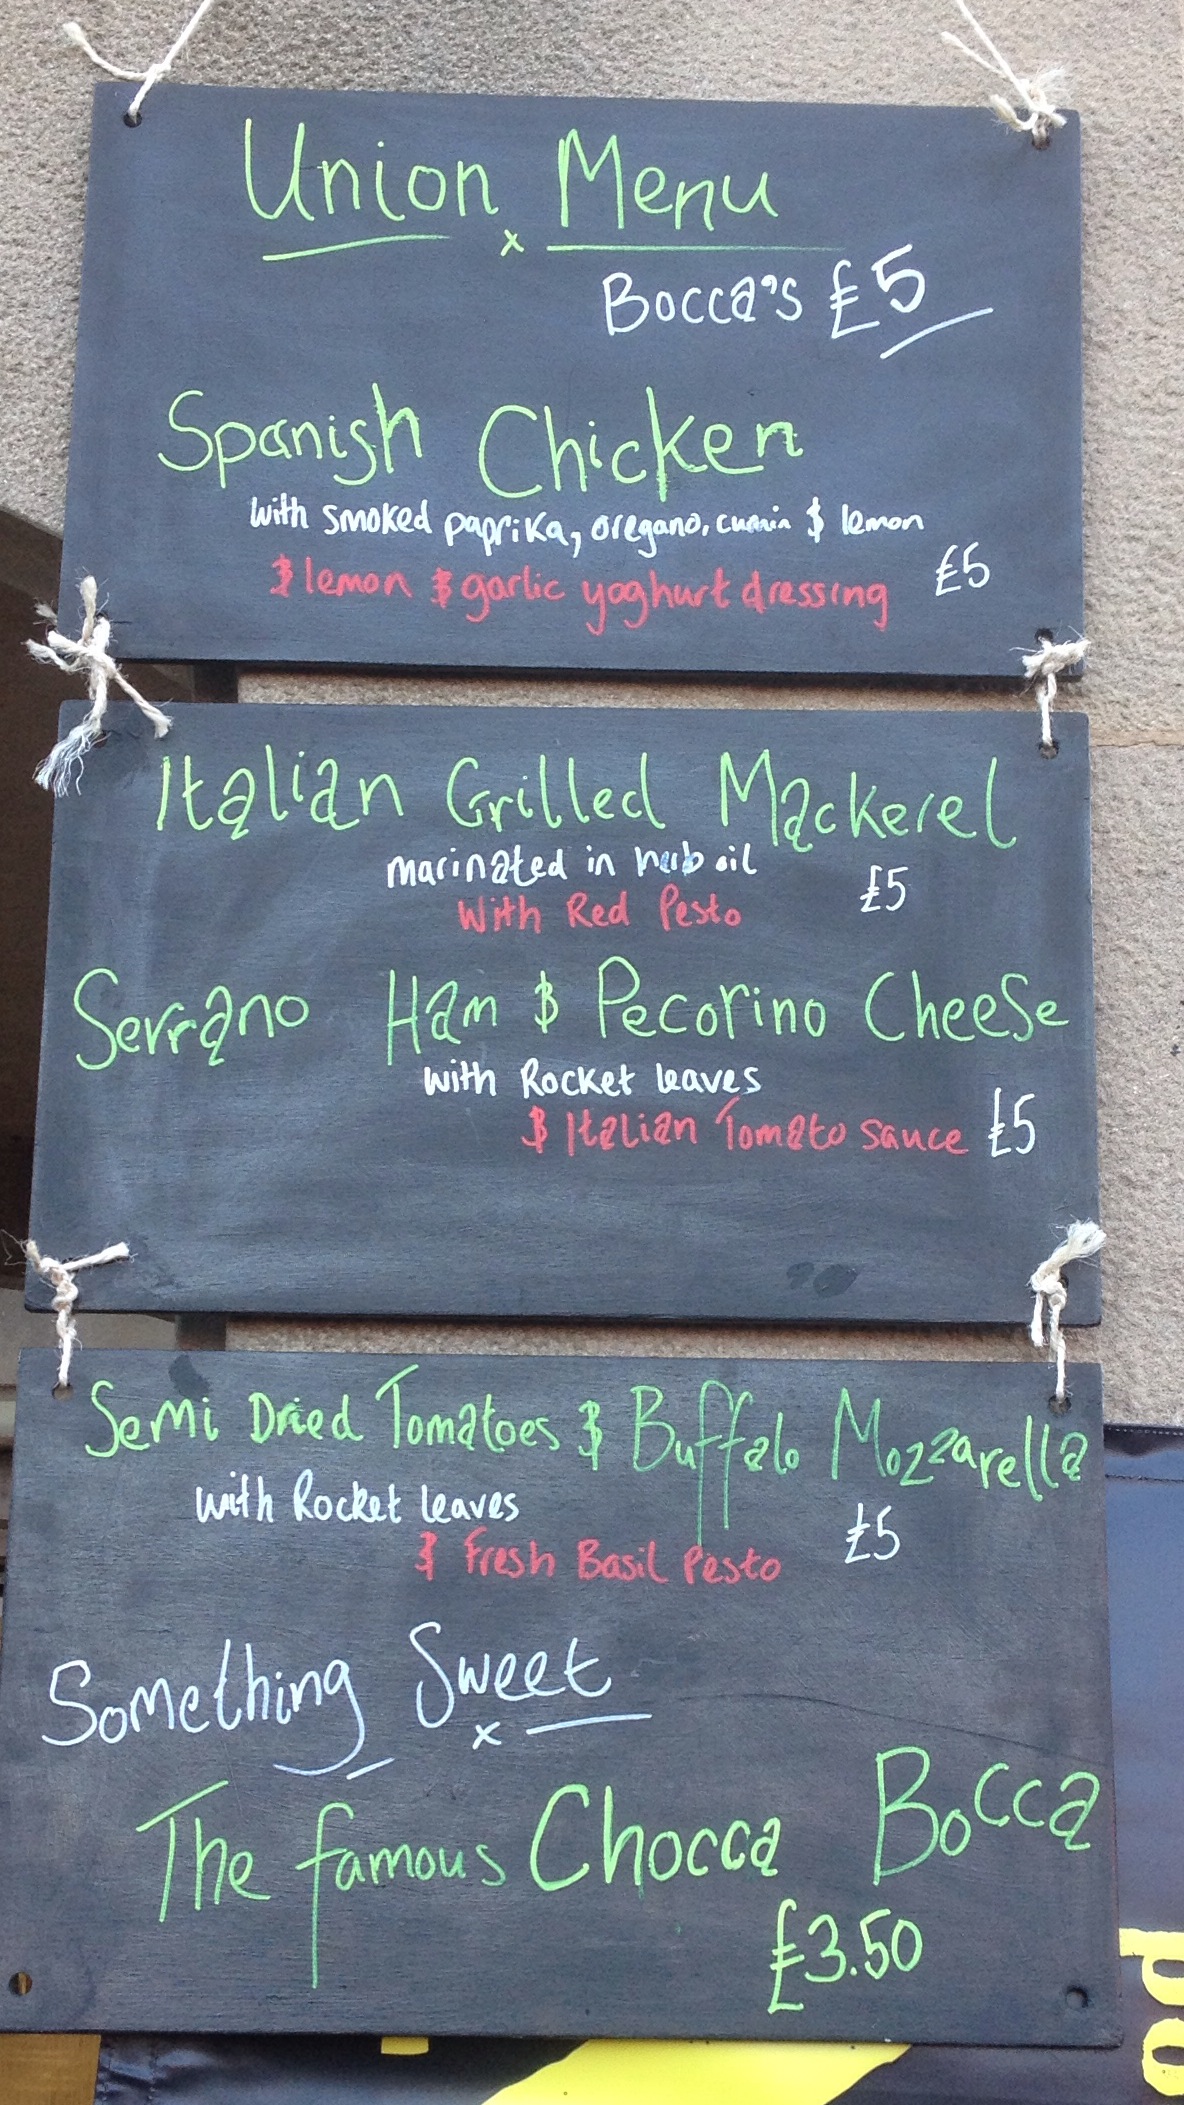 Union Menu
x
Bocca's £5
Spanish Chicken
with smoked paprika, oregano, cumin & lemon
& lemon & garlic yoghurt dressing £5
Italian Grilled Mackerel
marinated in herb oil £5
With Red Pesto
Serrano Ham & Pecorino Cheese
with Rocket leaves
& Italian Tomato sauce £5
Semi Dried Tomatoes & Buffalo Mozzarella
with Rocket leaves £5
& Fresh Basil Pesto
Something Sweet
x
The famous Chocca Bocca
£3.50
po